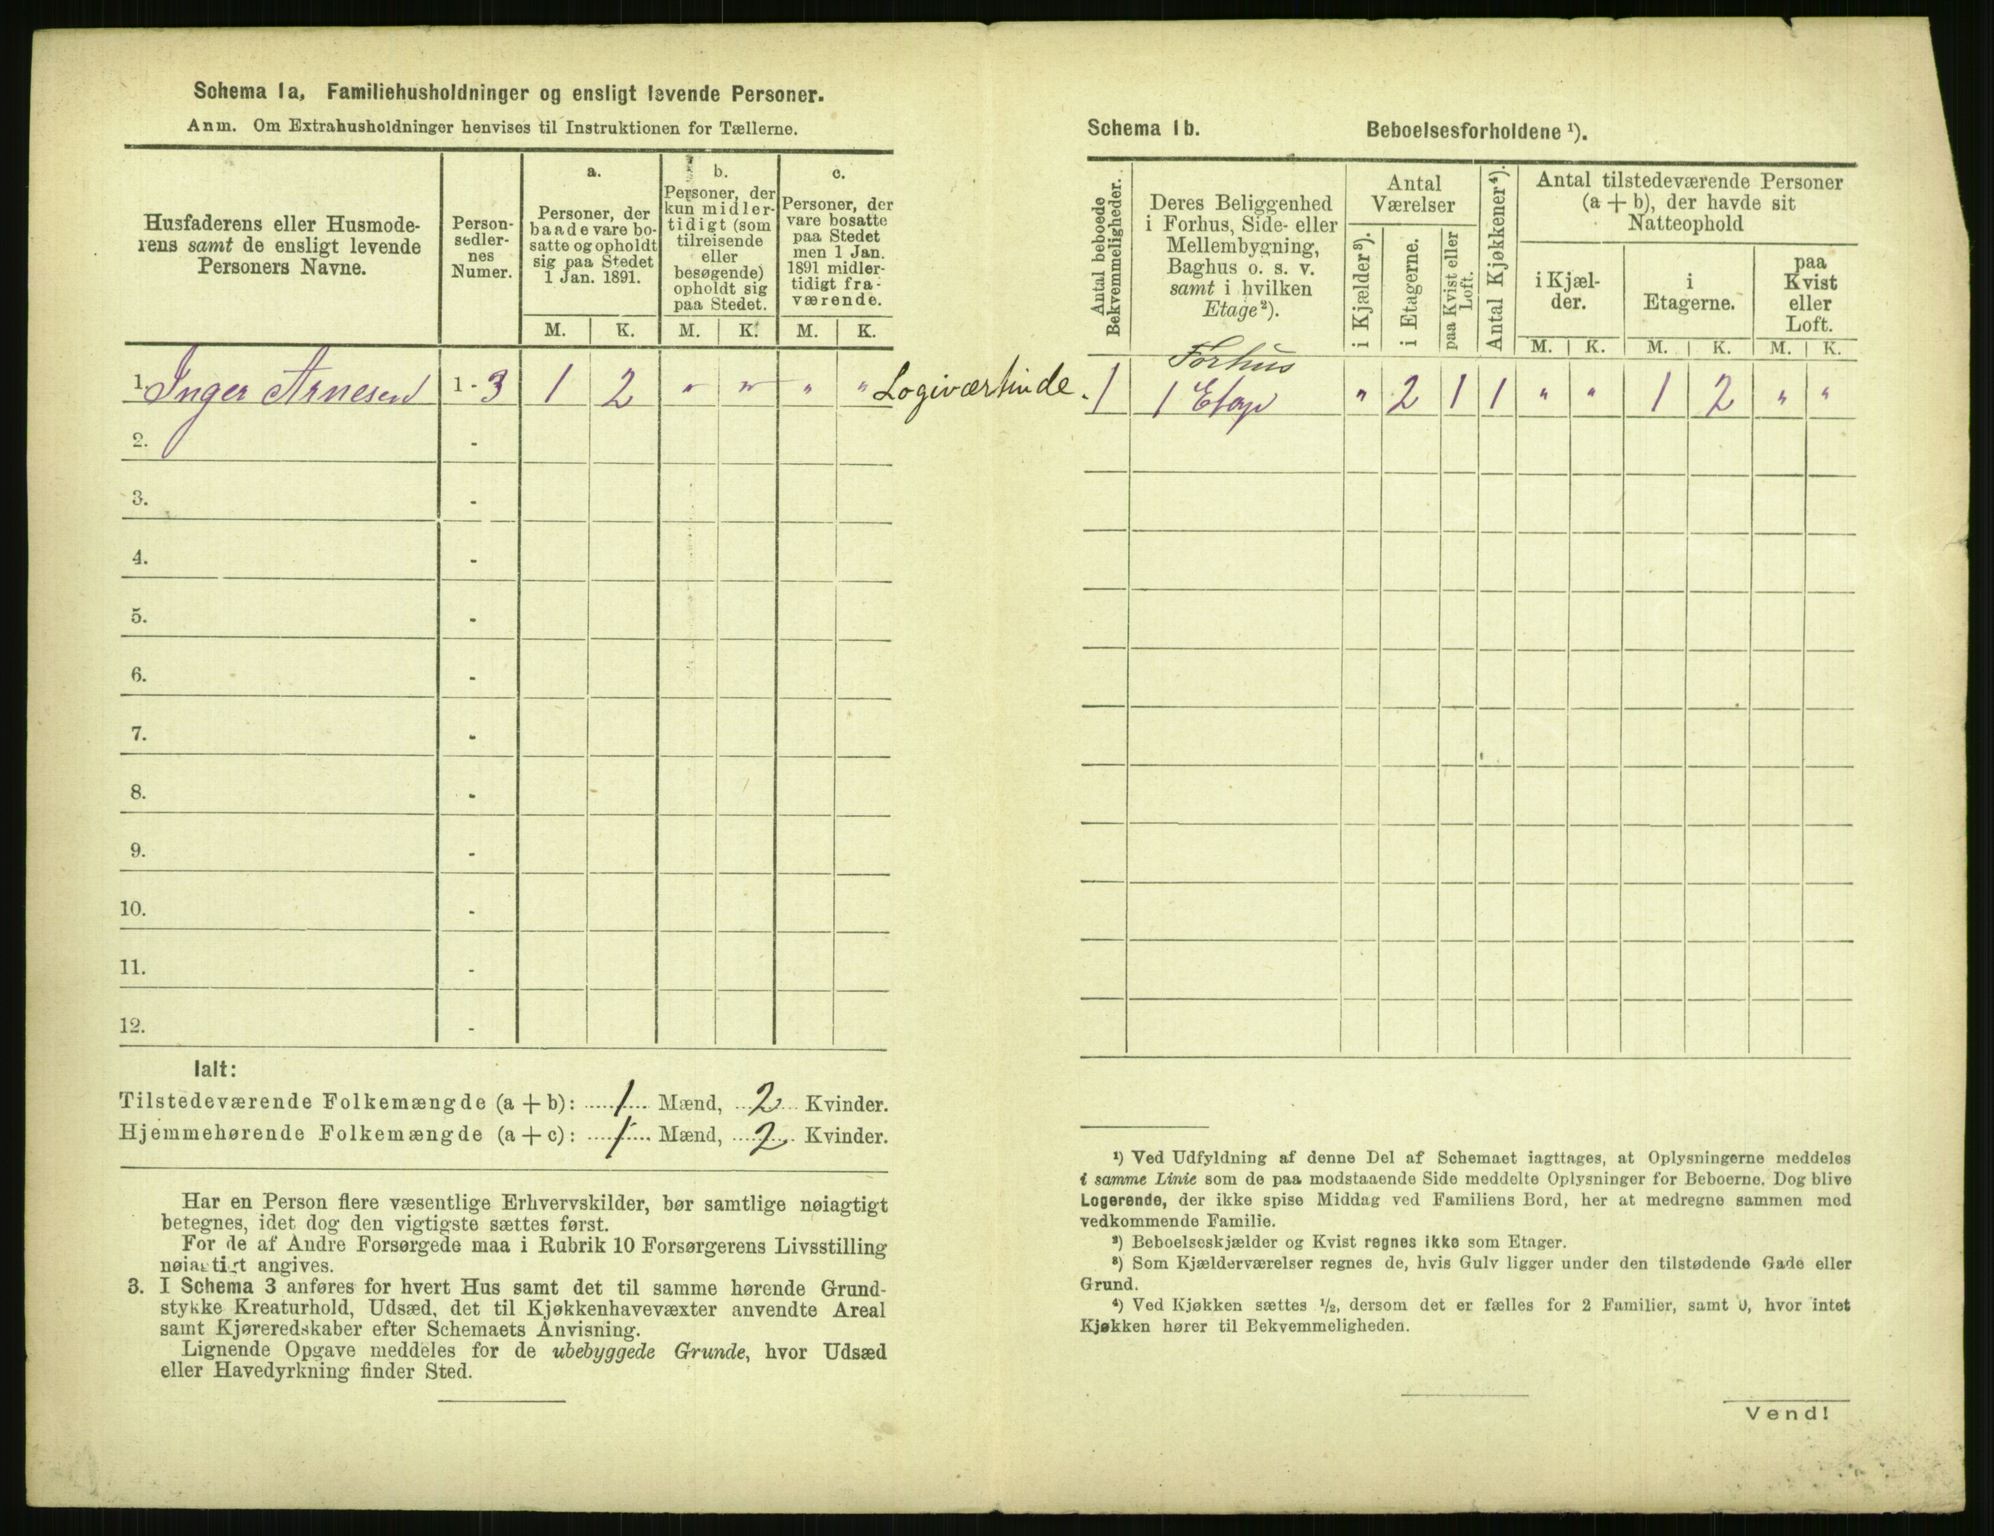 Schema 1a, Familiehusholdninger og ensligt levende Personer.
Anm. Om Extrahusholdninger henvises til Instruktionen for Tællerne.
Husfaderens eller Husmode-
rens samt de ensligt levende
Personers Navne.
Person-
sedler-
nes
Numer.
a.
Personer, der
baade vare bo-
satte og opholdt
sig paa Stedet
1 Jan. 1891.
b.
Personer, der
kun midler-
tidigt (som
tilreisende
eller
besøgende)
opholdt sig
paa Stedet.
c.
Personer, der
vare bosatte
paa Stedet
men 1 Jan.
1891 midler-
tidigt fra-
værende.
M. K. M. K. M. K.
1. Inger Arnesen 1 - 3 1 2 " " " " Logiværtinde.
2. -
3. -
4. -
5. -
6. -
7. -
8. -
9. -
10. -
11. -
12. -
Ialt:
Tilstedeværende Folkemængde (a + b): 1 Mænd, 2 Kvinder.
Hjemmehørende Folkemængde (a + c): 1 Mænd, 2 Kvinder.
Har en Person flere væsentlige Erhvervskilder, bør samtlige nøiagtigt
betegnes, idet dog den vigtigste sættes først.
For de af Andre Forsørgede maa i Rubrik 10 Forsørgerens Livsstilling
nøiagtigt angives.
3. I Schema 3 anføres for hvert Hus samt det til samme hørende Grund-
stykke Kreaturhold, Udsæd, det til Kjøkkenhavevæxter anvendte Areal
samt Kjøreredskaber efter Schemaets Anvisning.
Lignende Opgave meddeles for de ubebyggede Grunde, hvor Udsæd
eller Havedyrkning finder Sted.
Schema 1b. Beboelsesforholdene ¹).
Antal beboede
Bekvemmeligheder.
Deres Beliggenhed
i Forhus, Side- eller
Mellembygning,
Baghus o. s. v.
samt i hvilken
Etage ²).
Antal
Værelser
i Kjælder ³).
i Etagerne.
paa Kvist eller
Loft.
Antal Kjøkkener ⁴).
Antal tilstedeværende Personer
(a + b), der havde sit
Natteophold
i Kjæl-
der.
i
Etagerne.
paa
Kvist
eller
Loft.
M. K. M. K. M. K.
Forhus
1 1 Etage " 2 1 1 " " 1 2 " "
¹) Ved Udfyldning af denne Del af Schemaet iagttages, at Oplysningerne meddeles
i samme Linie som de paa modstaaende Side meddelte Oplysninger for Beboerne. Dog blive
Logerende, der ikke spise Middag ved Familiens Bord, her at medregne sammen med
vedkommende Familie.
²) Beboelseskjælder og Kvist regnes ikke som Etager.
³) Som Kjælderværelser regnes de, hvis Gulv ligger under den tilstødende Gade eller
Grund.
⁴) Ved Kjøkken sættes ½, dersom det er fælles for 2 Familier, samt 0, hvor intet
Kjøkken hører til Bekvemmeligheden.
Vend!